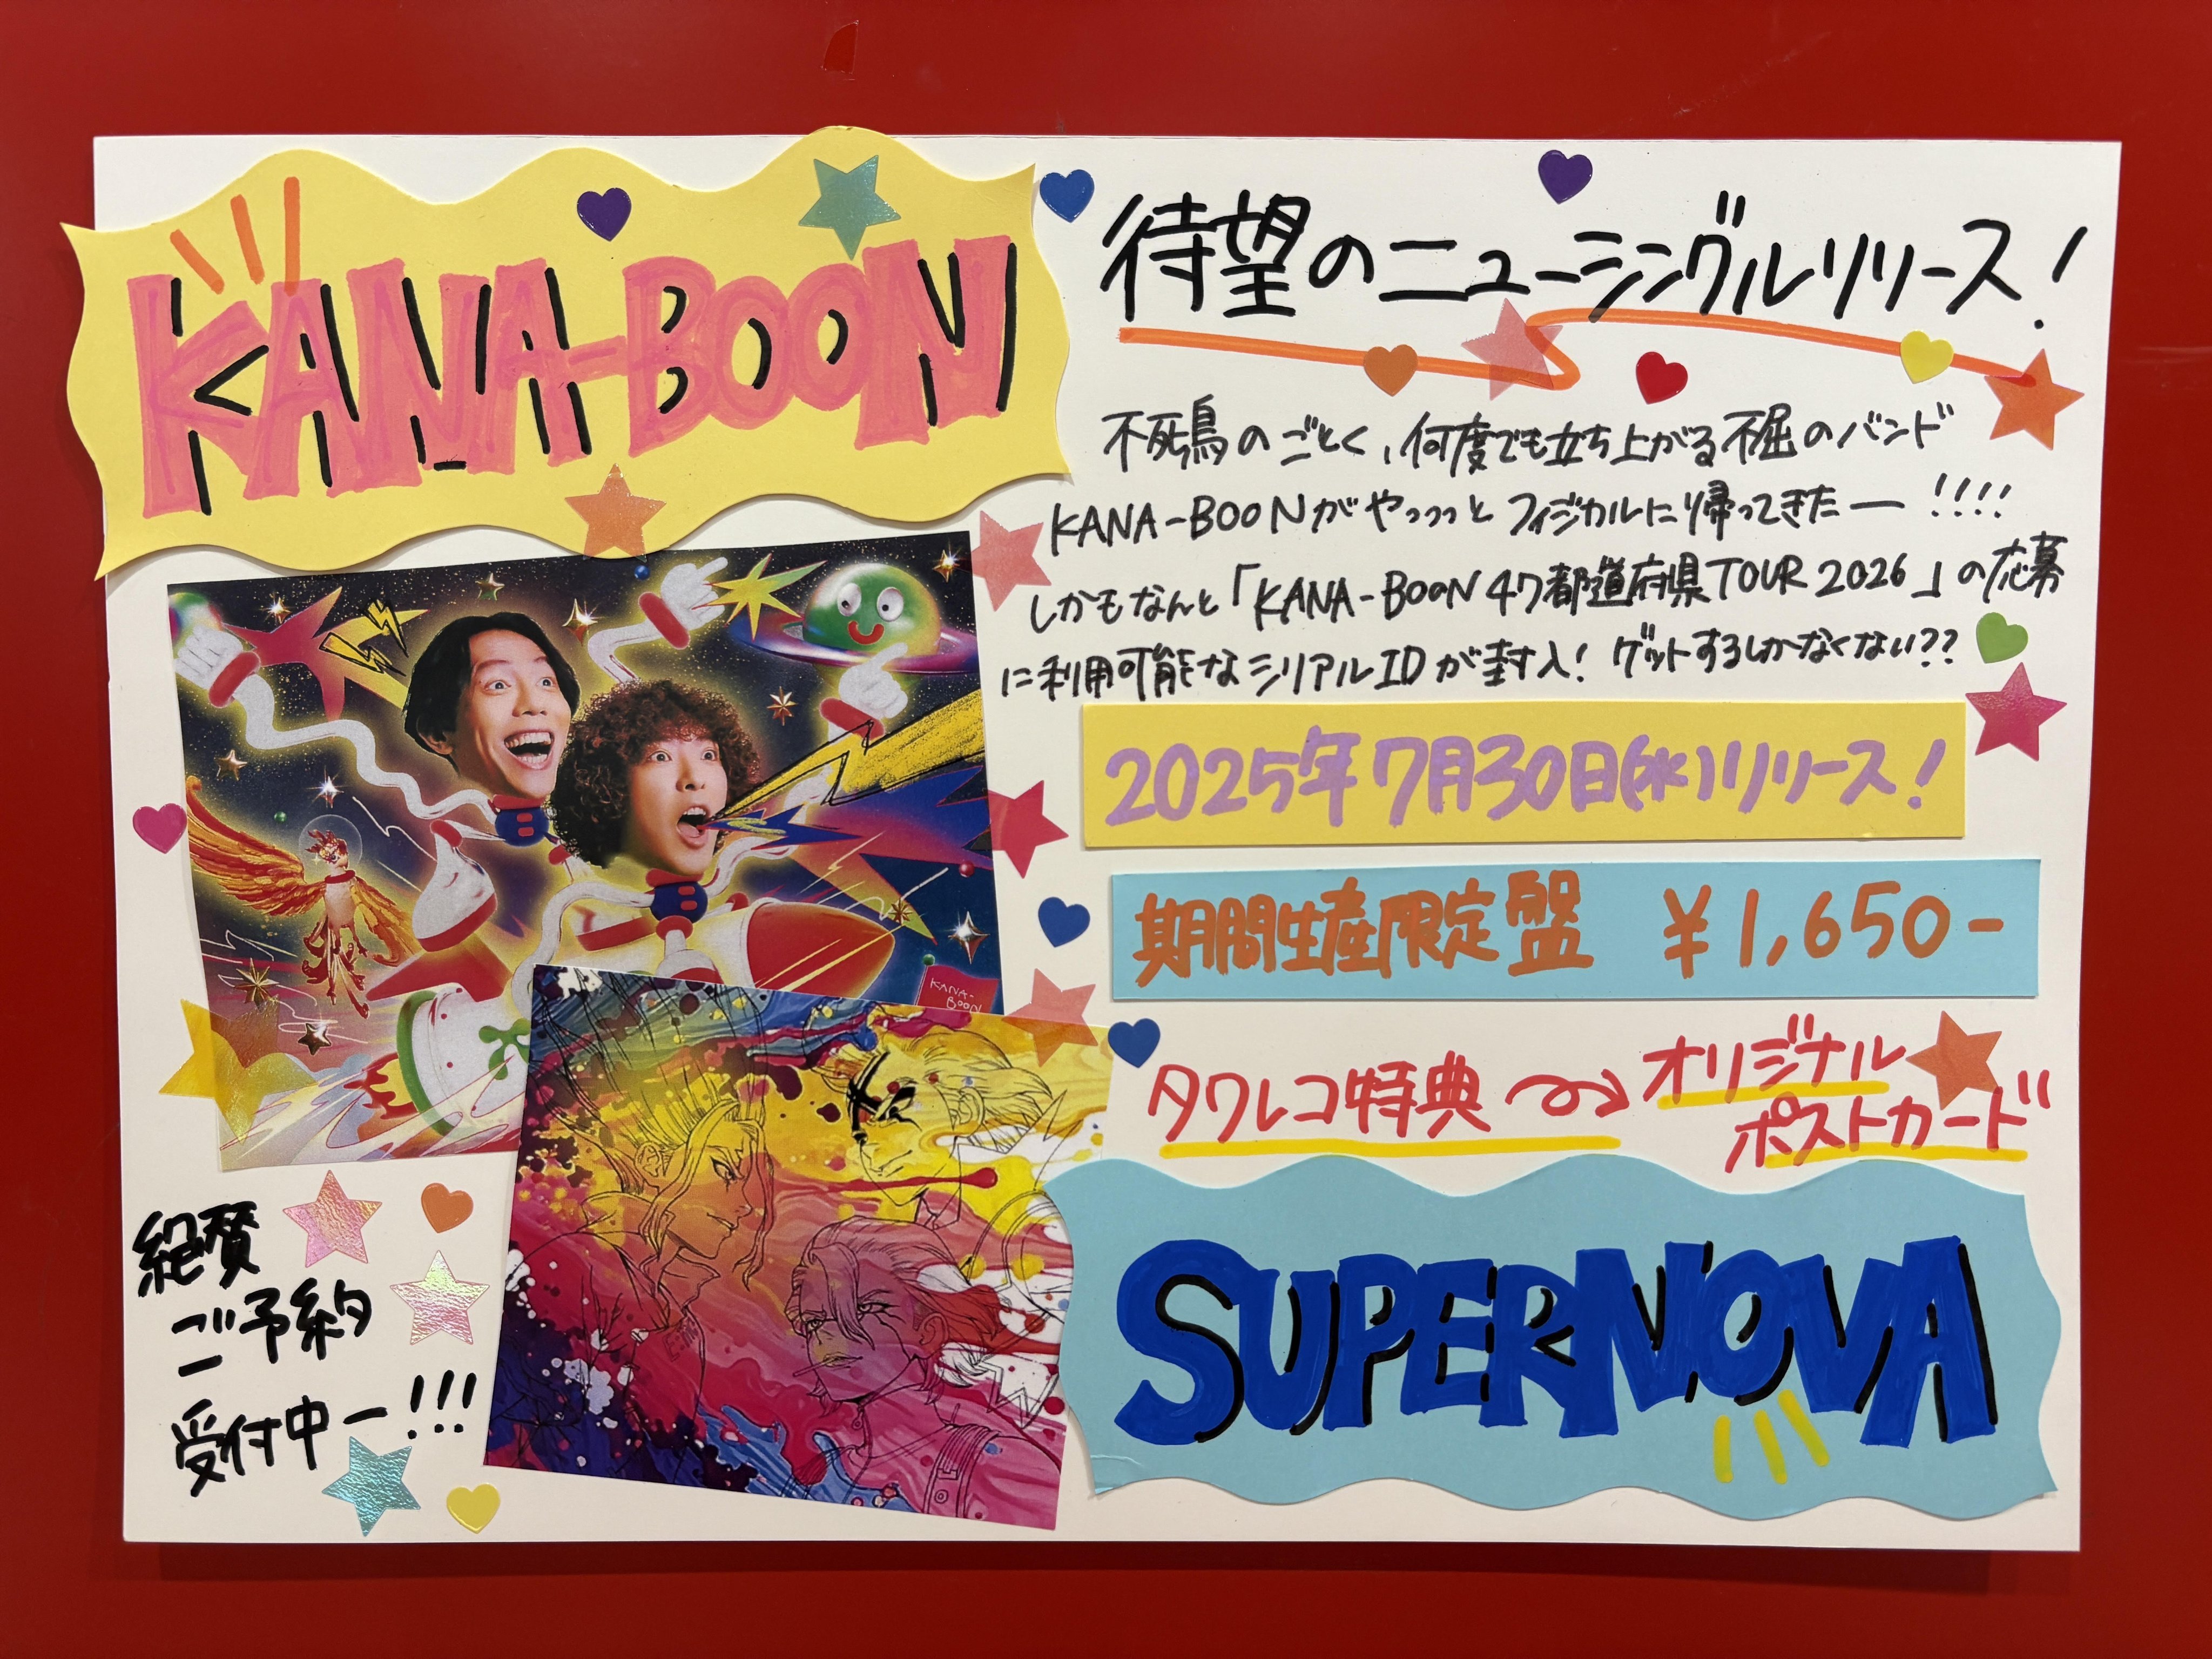 KANA-BOON
待望のニューシングルリリース!
不死鳥のごとく、何度でも立ち上がる不屈のバンド
KANA-BOONがやっっっとフィジカルに帰ってきたー!!!!
しかもなんと「KANA-BOON 47都道府県TOUR 2026」の応募
に利用可能なシリアルIDが封入! ゲットするしかなくない??
2025年7月30日(水)リリース!
期間生産限定盤 ¥1,650-
タワレコ特典 オリジナル
ポストカード
SUPERNOVA
KANA-
BOON
絶賛
ご予約
受付中ー!!!